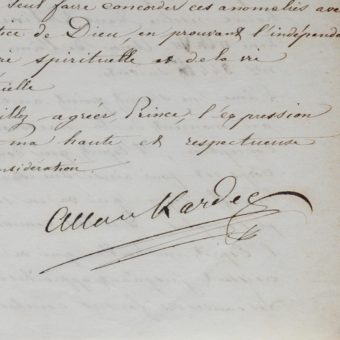 seul faire concorder ces anomalies ave
ice de Dieu, en prouvant l'indépenda
vie spirituelle et de la vie
tielle
illez agréer Prince l'expression
ma haute et respectueuse
nsidération
Allan Kardec